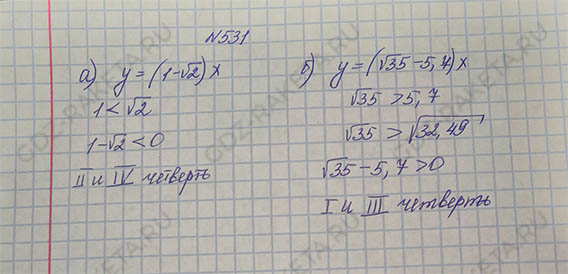 N531
а) y = (1-√2)x
1 < √2
1-√2 < 0
II и IV четверть
б) y = (√35-5,7)x
√35 > 5,7
√35 > √32,49
√35-5,7 > 0
I и III четверть
GDZ-RAKETA.RU